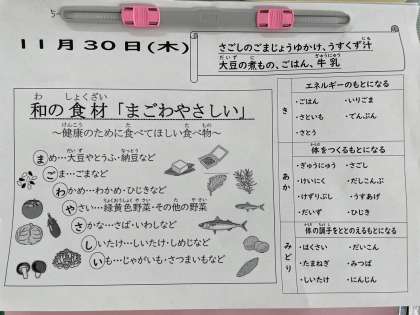 11月30日(木)
さごしのごまじょうゆかけ、うすくず汁
大豆の煮もの、ごはん、牛乳
和の食材「まごわやさしい」
~健康のために食べてほしい食べ物~
ま め…大豆やとうふ・納豆など
ご ま…ごまなど
わ かめ…わかめ・ひじきなど
や さい…緑黄色野菜・その他の野菜
さ かな…さば・いわしなど
し いたけ…しいたけ・しめじなど
い も…じゃがいも・さつまいもなど
き
エネルギーのもとになる
・ごはん ・いりごま
・さといも ・てんぷん
・さとう
あか
体をつくるもとになる
・ぎゅうにゅう ・さごし
・けいにく ・だしこんぶ
・けずりぶし ・うすあげ
・だいず ・ひじき
みどり
体の調子をととのえるもとになる
・はくさい ・だいこん
・たまねぎ ・みつば
・しいたけ ・にんじん